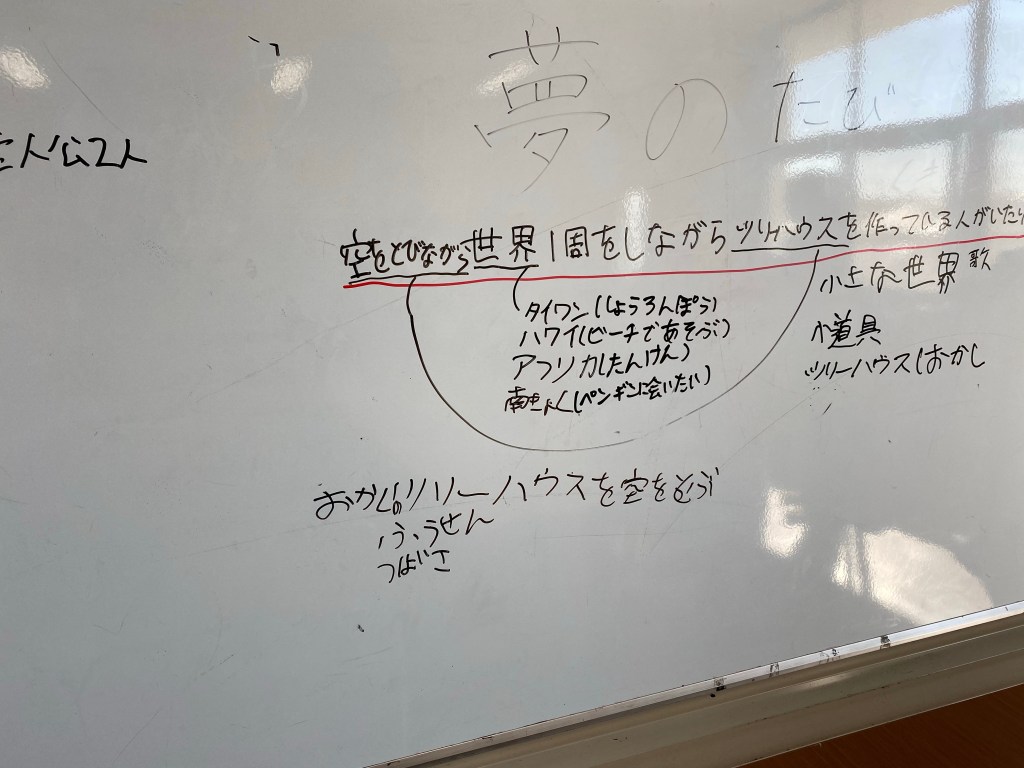 夢のたび
人公2人
空をとびながら世界1周をしながらツリーハウスを作っている人がいたり
小さな世界 歌
タイワン(しょうろんぽう)
ハワイ(ビーチであそぶ)
アフリカ(たんけん)
南きょく(ペンギンに会いたい)
小道具
ツリーハウス(おかし
おかしのツリーハウスを空をとぶ
ふうせん
つばさ